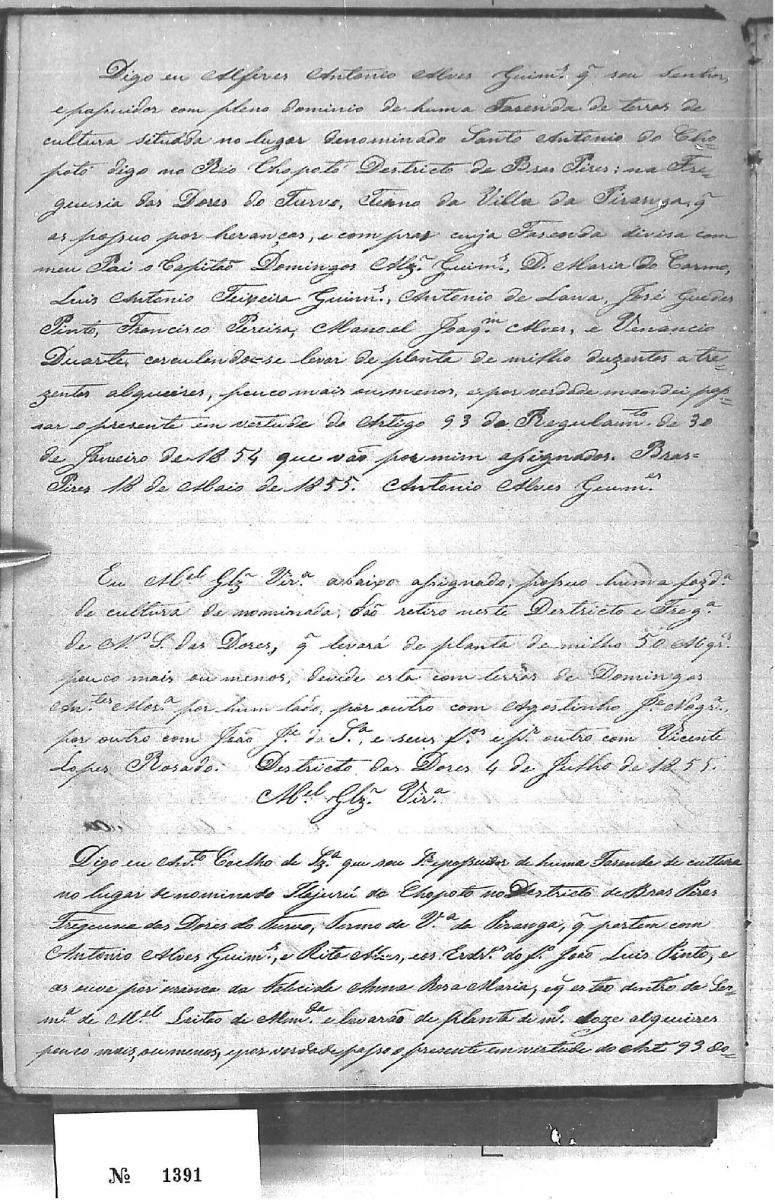 Digo eu Alferes Antonio Alves Guim.s q̃ sou Senhor,
e possuidor com pleno dominio de huma Fazenda de terras de
cultura situada no lugar denominado Santo Antonio do Cho-
potó digo no Rio Chopotó Destricto de Bras Pires; na Fre-
guesia das Dores do Turvo, Termo da Villa da Piranga, q̃
as possuo por heranças, e compras cuja Fazenda divisa com
meu Pai o Capitão Domingos Alz.ª Guim.s, D. Maria do Carmo,
Luis Antonio Teixeira Guim.s, Antonio de Lana, José Guedes
Pinto, Francisco Pereira, Manoel Joaq.m Alves, e Venancio
Duarte, calculando-se levar de planta de milho duzentos a tre-
zentos alqueires, pouco mais ou menos, e por verdade mandei pas-
sar o presente em vertude do Artigo 93 do Regulam.to de 30
de Janeiro de 1854 que vão por mim assignados. Bras-
Pires 18 de Maio de 1855. Antonio Alves Guim.es
Eu M.el Glz.ª Vir.ª abaixo assignado, possuo huma fazd.ª
de cultura denominada, São retiro neste Destricto e Freg.ª
de N. S. das Dores, q̃ levará de planta de milho 50 Alqr.s
pouco mais ou menos, devide esta com terras de Domingos
por hum lado, por outro com Agostinho J.e Nogr.ª,
por outro com João J.e da S.ª, e seus f.os e p.r outro com Vicente
Lopes Rosado. Destricto das Dores 4 de Julho de 1855.
M.el Glz.ª Vir.ª
Digo eu Ant.º Coelho de Sz.ª que sou S.r e possuidor de huma Fasenda de cultura
no lugar denominado Itajurú do Chopoto no Destricto de Bras Pires
Freguesia das Dores do Turvo, Termo da V.ª da Piranga, q̃ partem com
Antonio Alves Guim.s, e Rita Alves, e os Erdr.s do f.º João Luis Pinto, e
as ouve por erança da falecida Anna Rosa Maria, e q̃ estão dentro da Ses-
m.ª de M.el Leitão de Alm.da e levarão de planta de m.º doze alqueires
pouco mais, ou menos, e por verdade passo o presente em vertude do Art 93 do-
№ 1391